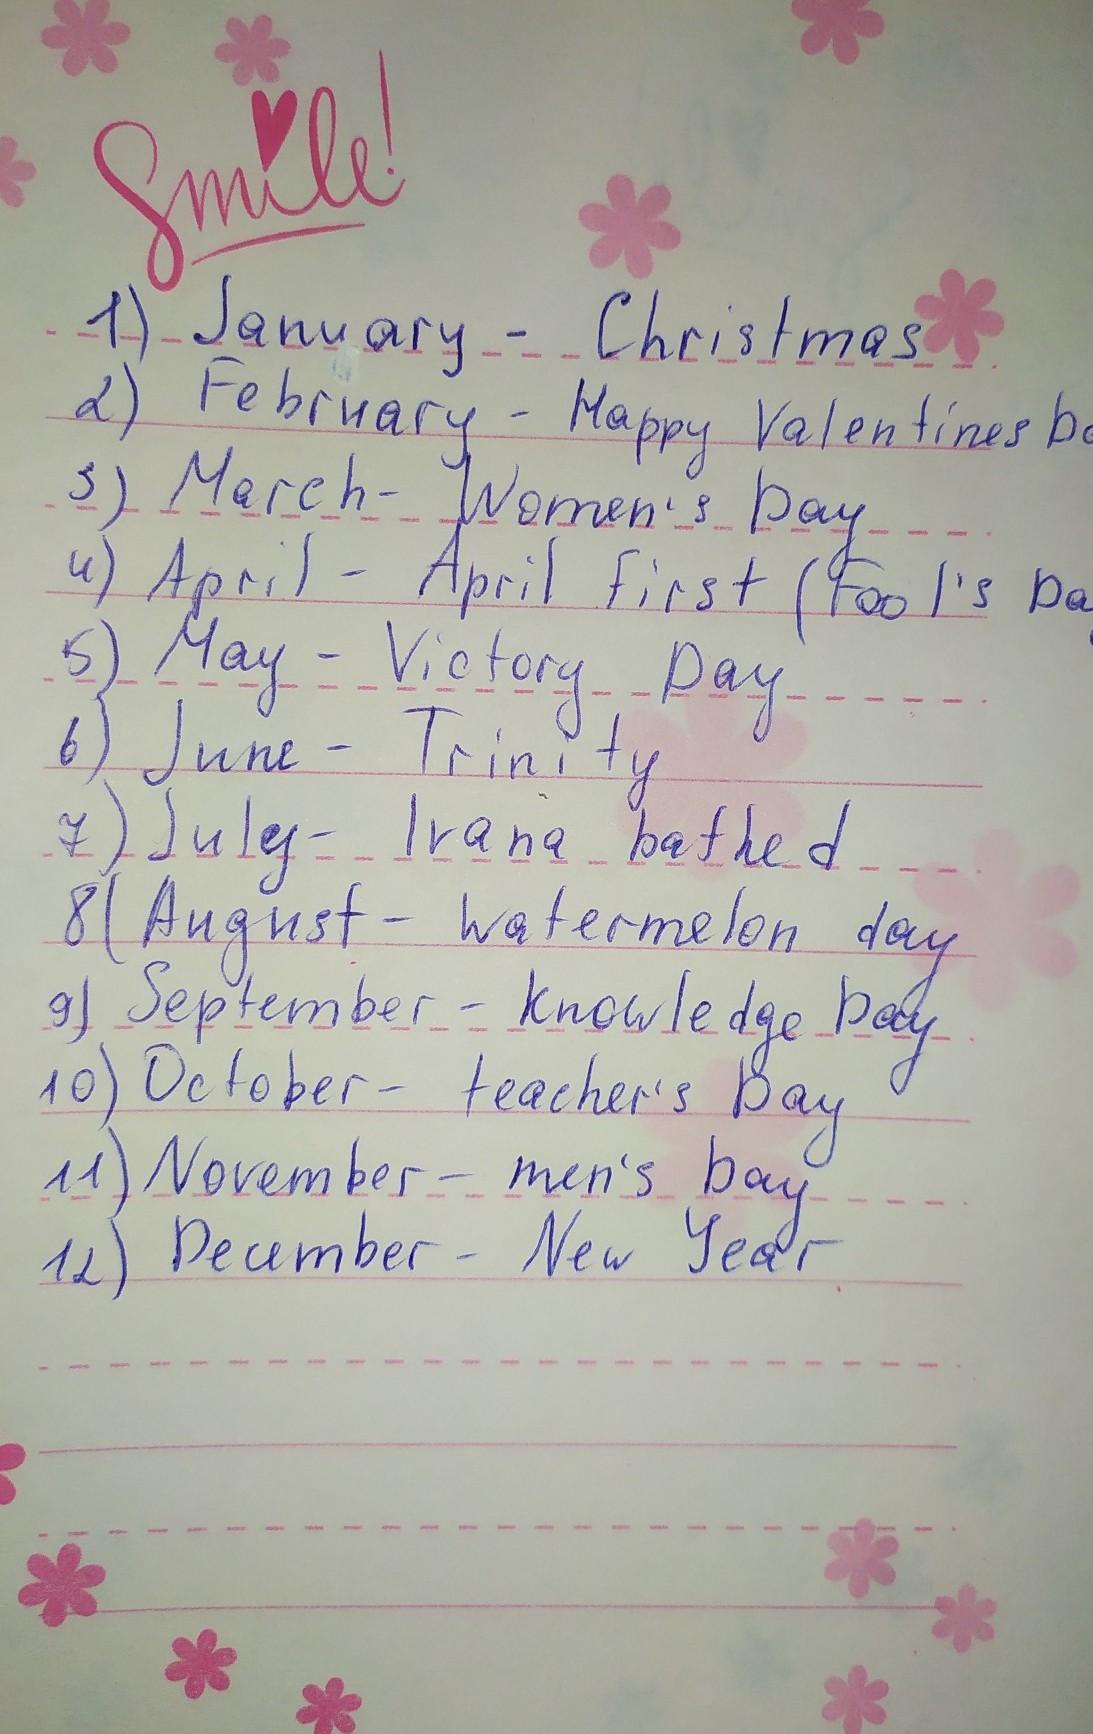 Smile!
1) January - Christmas
2) February - Happy Valentines
3) March - Women's Day
4) April - April first (Fool's Da
5) May - Victory Day
6) June - Trinity
7) July - Ivana bathed
8( August - Watermelon day
9) September - knowledge Day
10) October - teacher's Day
11) November - men's Day
12) December - New Year